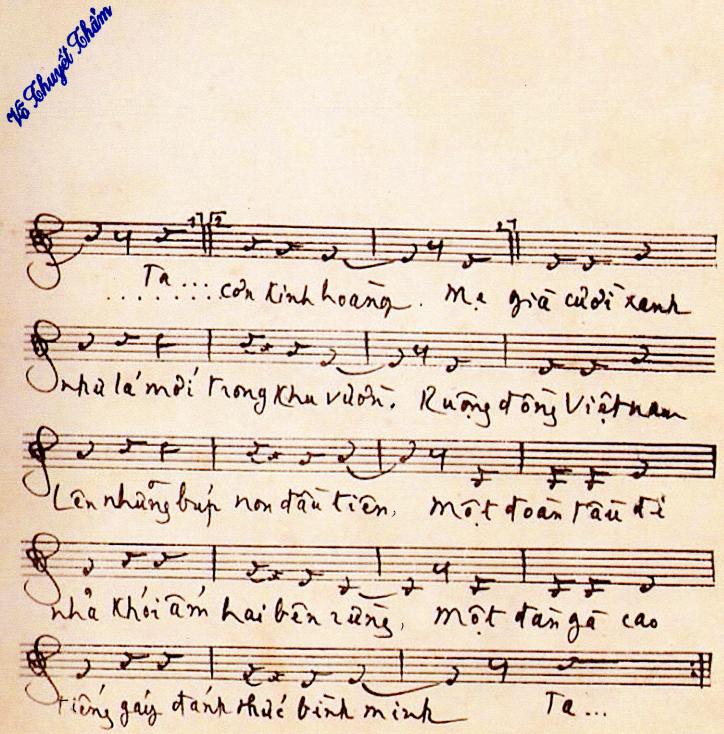 Võ Thuyết Thẩm
1 2 2
Ta... ........ cơn kinh hoàng. Mẹ già cười xanh
như lá mới trong khu vườn. Ruộng đồng Việt nam
Lên những búp non đầu tiên, một đoàn tàu đi
nhả khói ấm hai bên rừng, một đàn gà cao
tiếng gáy đánh thức bình minh Ta...